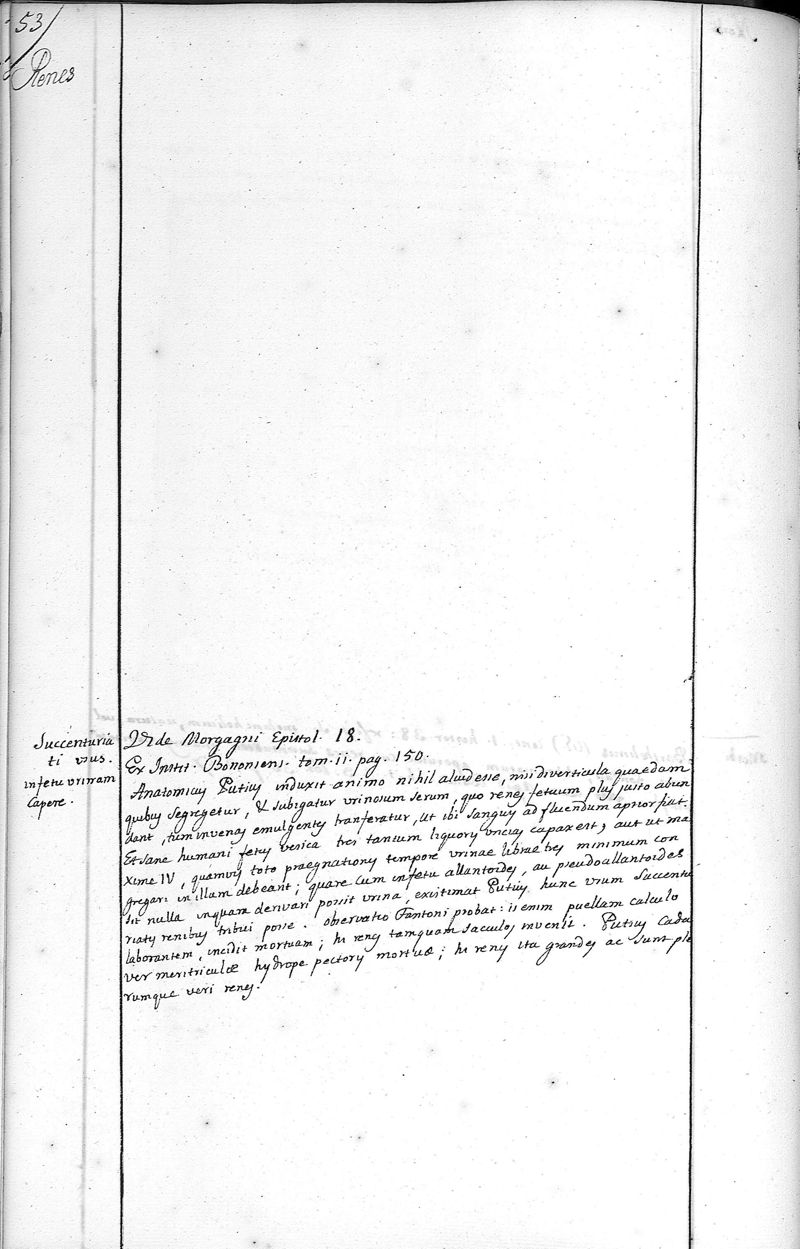 53
Renes
Succenturia
ti usus.
in fetu urinam
capere.
Vide Morgagni Epistol. 18.
Ex Instit. Bononiens. tom. ii. pag. 150.
Anatomicus Putius induxit animo nihil aliud esse, nisi diverticula quaedam
quibus segregetur, & subigatur urinosum serum, quo renes fetuum plus justo abun
dant, tum in venas emulgentes tranferatur, ut ibi sanguis ad fluendum aptior fiat.
Et sane humani fetus vesica tres tantum liquoris uncias capax est, aut ut ma
xime IV, quamvis toto praegnationis tempore urinae librae tres minimum con
gregari in illam debeant; quare cum in fetu allantoides, au pseudoallantoides
sit nulla unquam derivari possit urina, existimat Putius hunc usum succentu
riatis renibus tribui posse. observatio Fantoni probat: is enim puellam calculo
laborantem, incidit mortuam; hi renes tamquam saculos invenit. Putius cada
ver meritriculæ hydrope pectoris mortuæ; hi renes ita grandes ac sunt ple
rumque veri renes.